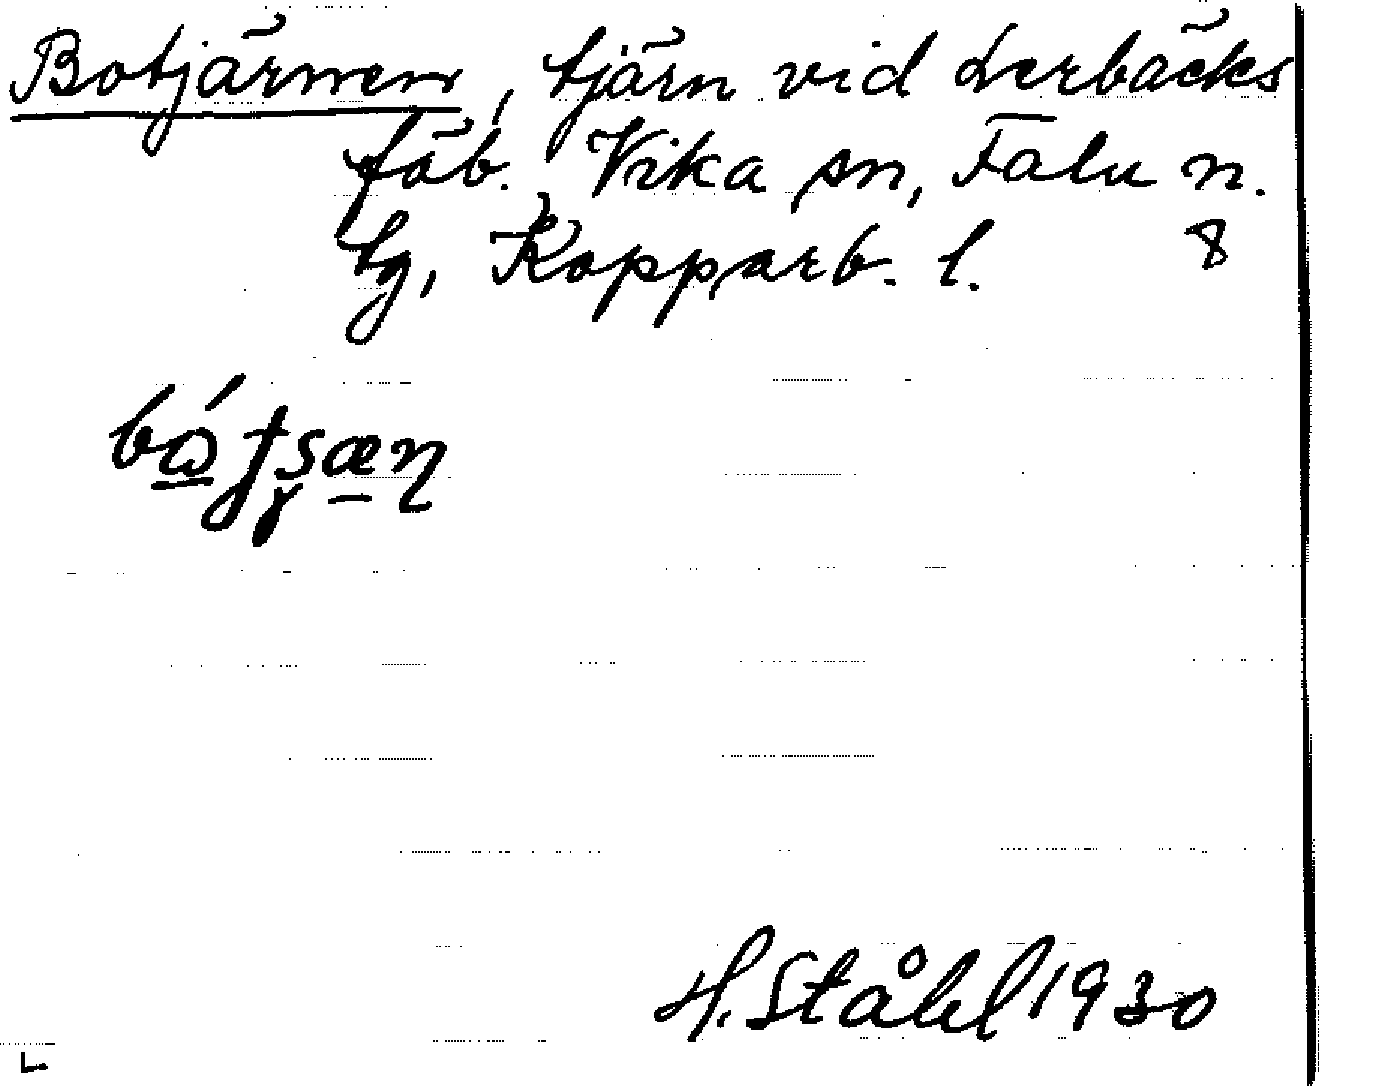 Botjärnen, tjärn vid Lerbäcks
fäb. Vika sn, Falu n.
tg, Kopparb. l. 8
H. Ståhl 1930
L.